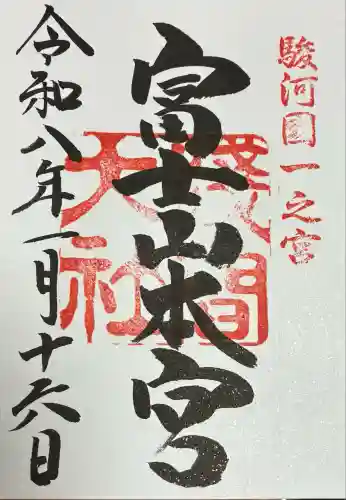 駿河國一之宮
富士山本宮
浅間
大社
令和八年一月十六日